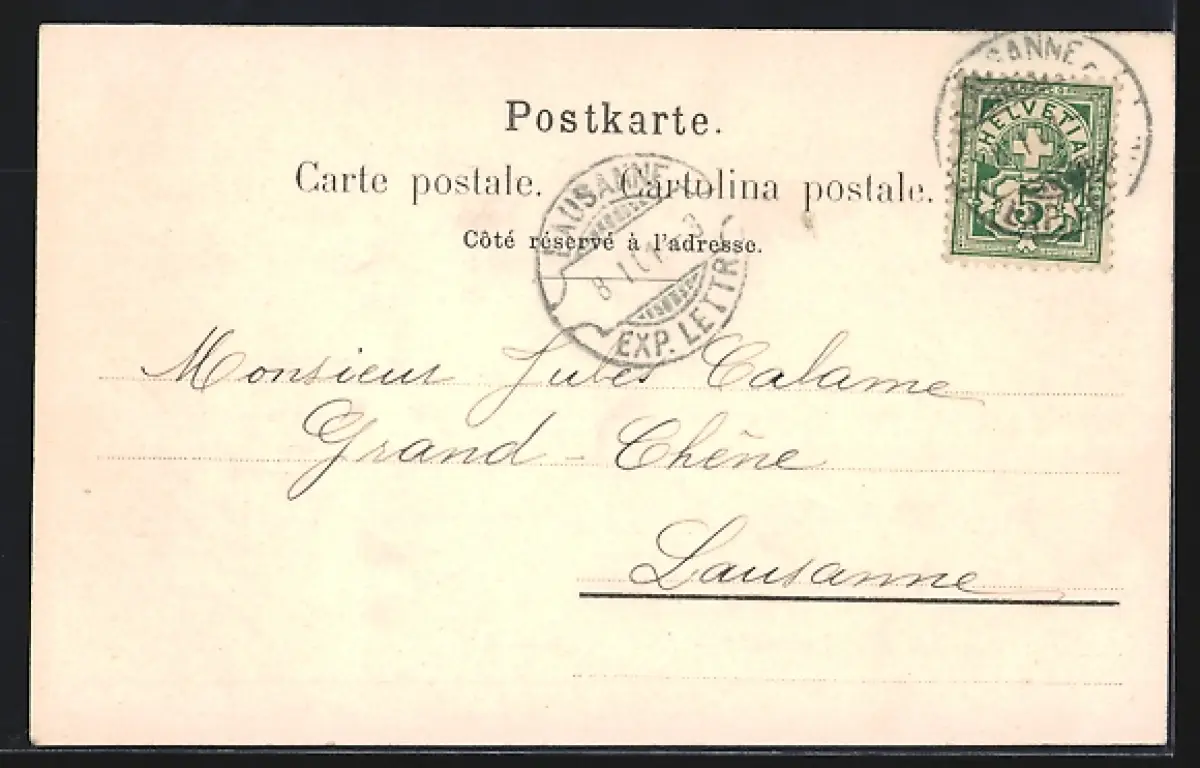 Postkarte.
Carte postale. Cartolina postale.
Côté réservé à l'adresse.
HELVETIA
5
LAUSANNE
EXP. LETTR.
Monsieur Jules Calame
Grand-Chêne
Lausanne